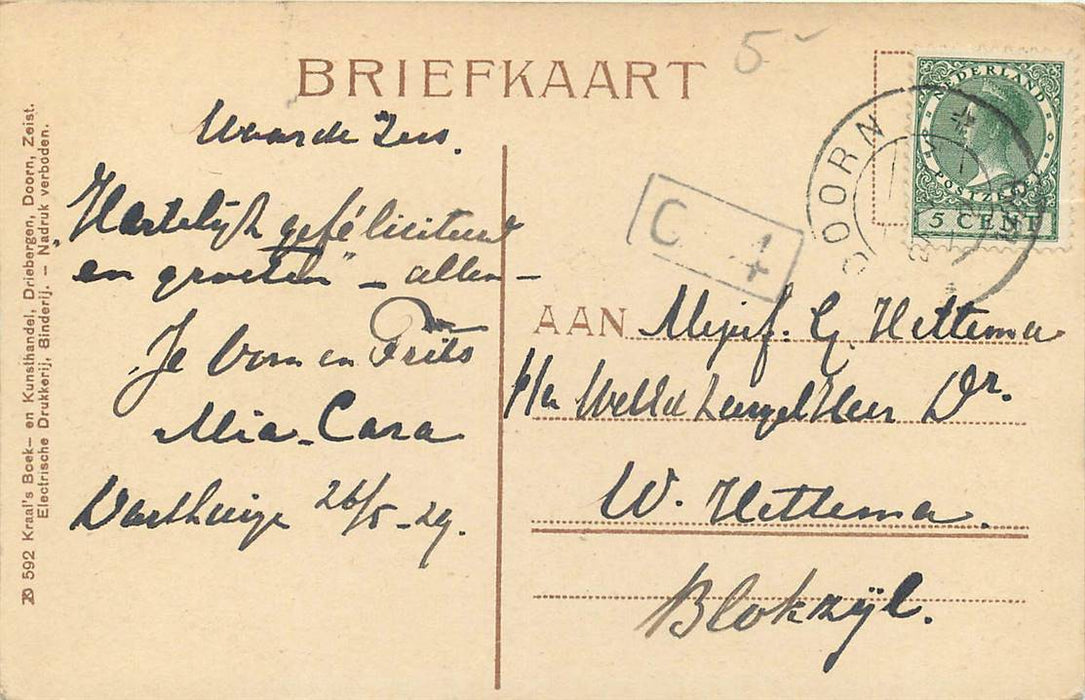 BRIEFKAART
5-
Waarde Zus.
"Hartelijk gefeliciteerd
en groeten" - allen -
Je Oom en Frits
Mia - Cara
26/5-29.
592 Kraal's Boek- en Kunsthandel, Driebergen, Doorn, Zeist.
Electrische Drukkerij, Binderij. - Nadruk verboden.
NEDERLAND
POSTZEGEL
5 CENT
DOORN
C 4
AAN Mejuf. G. Hettema
p/a Heer Dr.
W. Hettema.
Blokzijl.